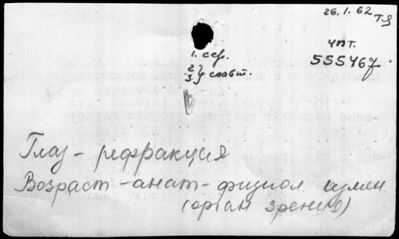 26.1.62
чпт.
555467
1. ссг.
2}
3} славт.
Глаз - рефракция
Возраст - анат - физиол измен.
(орган зрения)